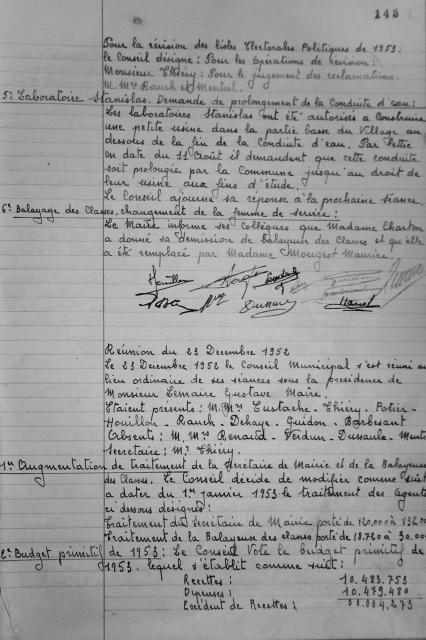 145
Pour la révision des listes Electorales Politiques de 1953.
le Conseil désigne: Pour les opérations de révision:
Monsieur Thiéry: Pour le jugement des réclamations.
M. Mrs Rauch et Menteil.
5° Laboratoire Stanislas. Demande de prolongement de la Conduite d'eau:
Les laboratoires Stanislas ont été autorisés à Construire
une petite usine dans la partie basse du Village au
dessous de la fin de la Conduite d'eau. Par lettre
en date du 11 Août il demandent que cette conduite
soit prolongée par la Commune jusqu'au droit de
leur usine aux fins d'étude.
Le Conseil ajourne sa réponse à la prochaine séance.
6° Balayage des Classes, changement de la femme de service:
Le Maire informe ses Collègues que Madame Charton
a donné sa démission de balayeuse des Classes et qu'elle
a été remplacée par Madame Mougeot Maurice.
Houillon
Réunion du 23 Décembre 1952
Le 23 Décembre 1952 le Conseil Municipal s'est réuni au
lieu ordinaire de ses séances sous la présidence de
Monsieur Lemaire Gustave Maire.
Etaient présents: M. Mrs Eustache - Thiéry - Potier -
Houillon - Rauch - Dehaye - Guidon - Barbesant
Absents: M. Mrs Renard - Verdun - Dussaula -
Secrétaire: Mr Thiéry.
1° Augmentation de traitement de la secrétaire de Mairie et de la Balayeuse
des Classes. Le Conseil décide de modifier comme suit
à dater du 1er janvier 1953 le traitement des agents
ci dessous désignés:
Traitement du Secrétaire de Mairie porté de 120.000 à
Traitement de la Balayeuse des classes porté de 18.720 à 30.000
2° Budget primitif de 1953: Le Conseil Vote le budget primitif de
1953. lequel s'établit comme suit:
Recettes: 10.483.753
Dépenses: 10.479.480
Excédent de Recettes: 00.004.273